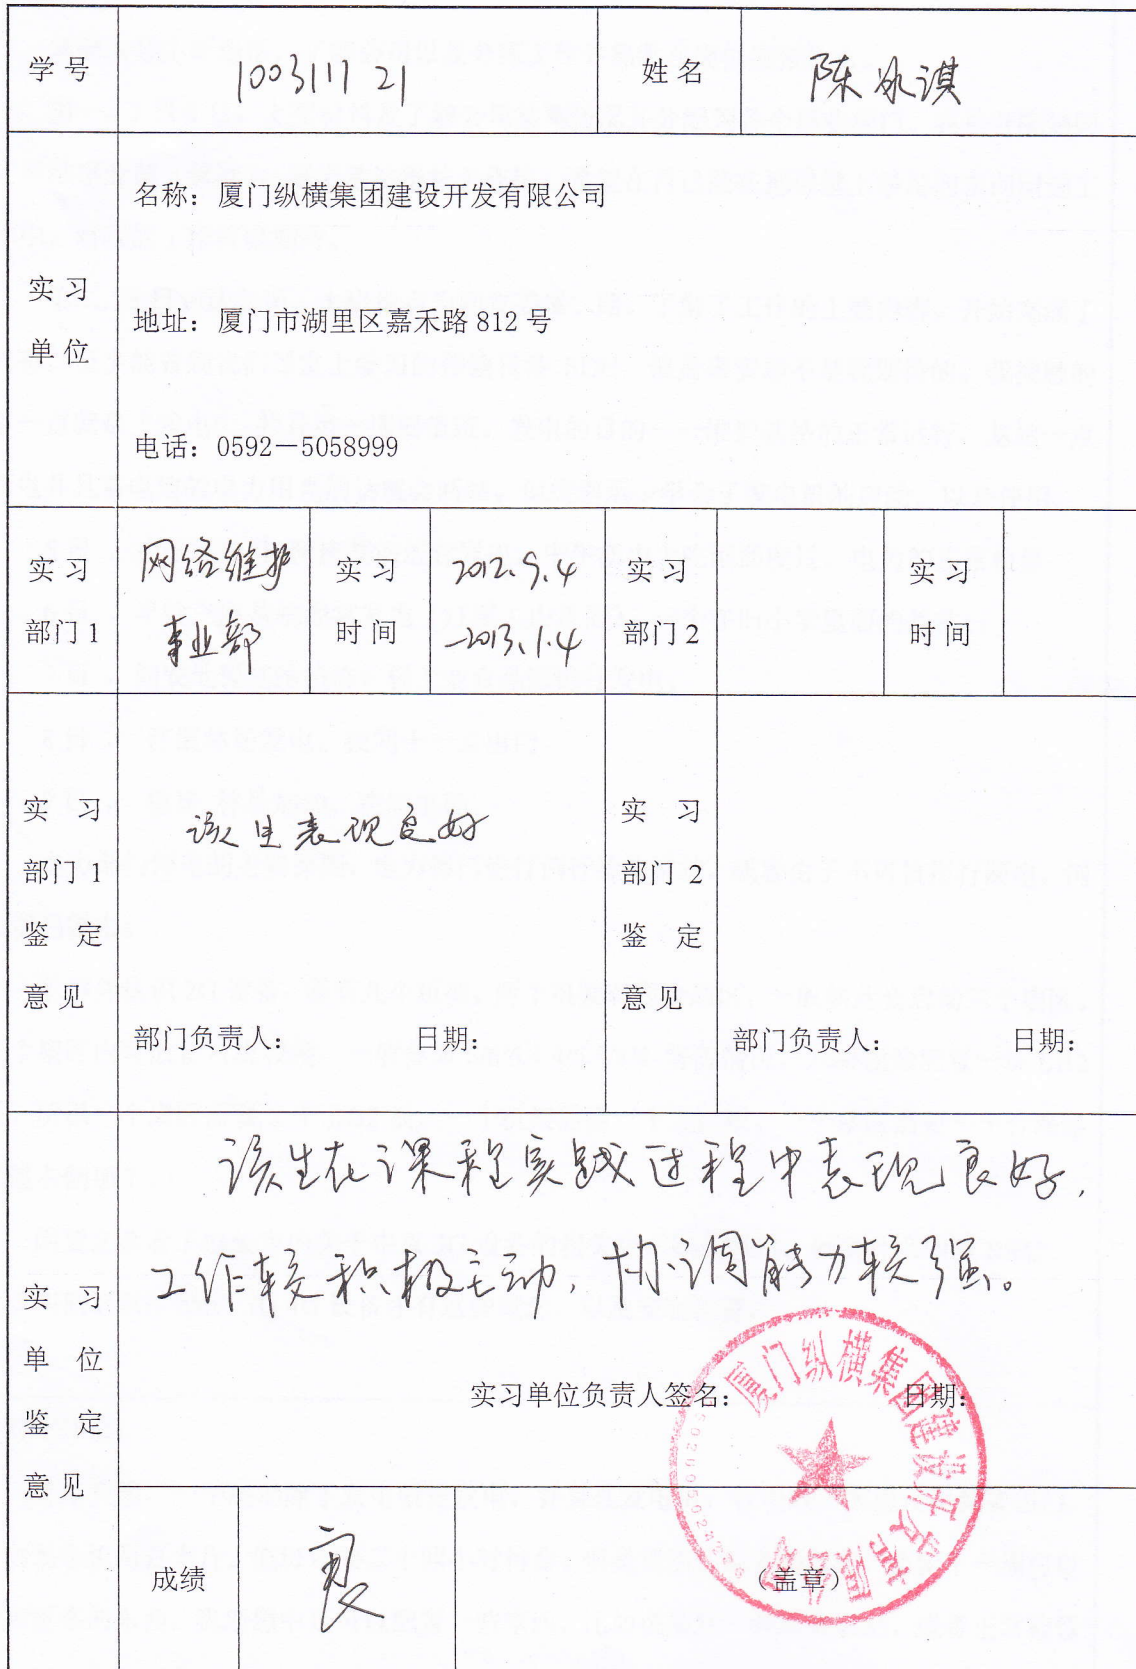 学号 1003111721 姓名 陈冰淇
实习单位
名称：厦门纵横集团建设开发有限公司
地址：厦门市湖里区嘉禾路 812 号
电话：0592－5058999
实习部门1 网络维护事业部 实习时间 2012.9.4-2013.1.4 实习部门2 实习时间
实习部门 1 鉴定意见
该生表现良好
部门负责人： 日期：
实习部门 2 鉴定意见
部门负责人： 日期：
实习单位鉴定意见
该生在课程实践过程中表现良好，
工作较积极主动，协调能力较强。
实习单位负责人签名： 日期：
厦门纵横集团建设开发有限公司
成绩 良 （盖章）